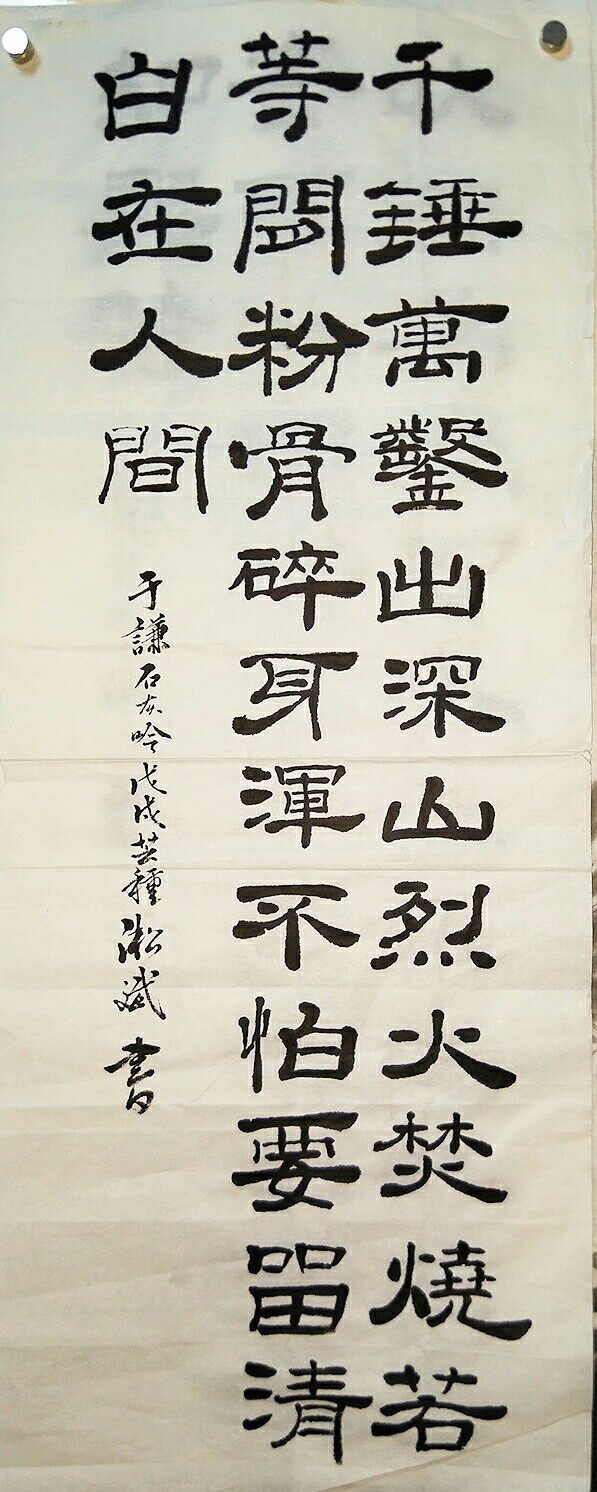 千錘萬鑿出深山烈火焚燒若
等閒粉骨碎身渾不怕要留清
白在人間
于謙石灰吟戊戌芒種淞斌書